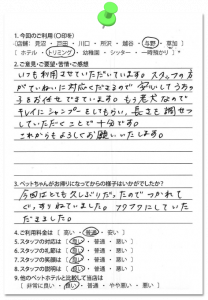 1.今回のご利用(○印を)
(店舗:見沼・戸田・川口・所沢・越谷・与野・草加)
[ ホテル・トリミング・幼稚園・シッター・一時預かり]*
2.ご意見・ご要望・苦情・ご感想
いつも利用させていただいています。スタッフの方
がていねいに対応くださるので 安心してうちの
子をお任せできています。もう老犬なので
キレイにシャンプーしてもらい、長さを調せつ
していただくことで十分です。
これからもよろしくお願いいたします。
3.ペットちゃんがお帰りになってからの様子はいかがでしたか?
今回はとても久しぶりだったのでつかれて
ぐっすりねていました。フワフワにしていた
だきました。
4.ご利用料金は [ 高い・普通・安い ]
5.スタッフの対応は [ 良い・普通・悪い ]
6.スタッフの礼儀は [ 良い・普通・悪い ]
7.スタッフの技術は [ 良い・普通・悪い ]
8.スタッフの説明は [ 良い・普通・悪い ]
9.他のペットホテルと比較して当店は
[ 非常に良い・良い・普通・やや悪い・悪い ]